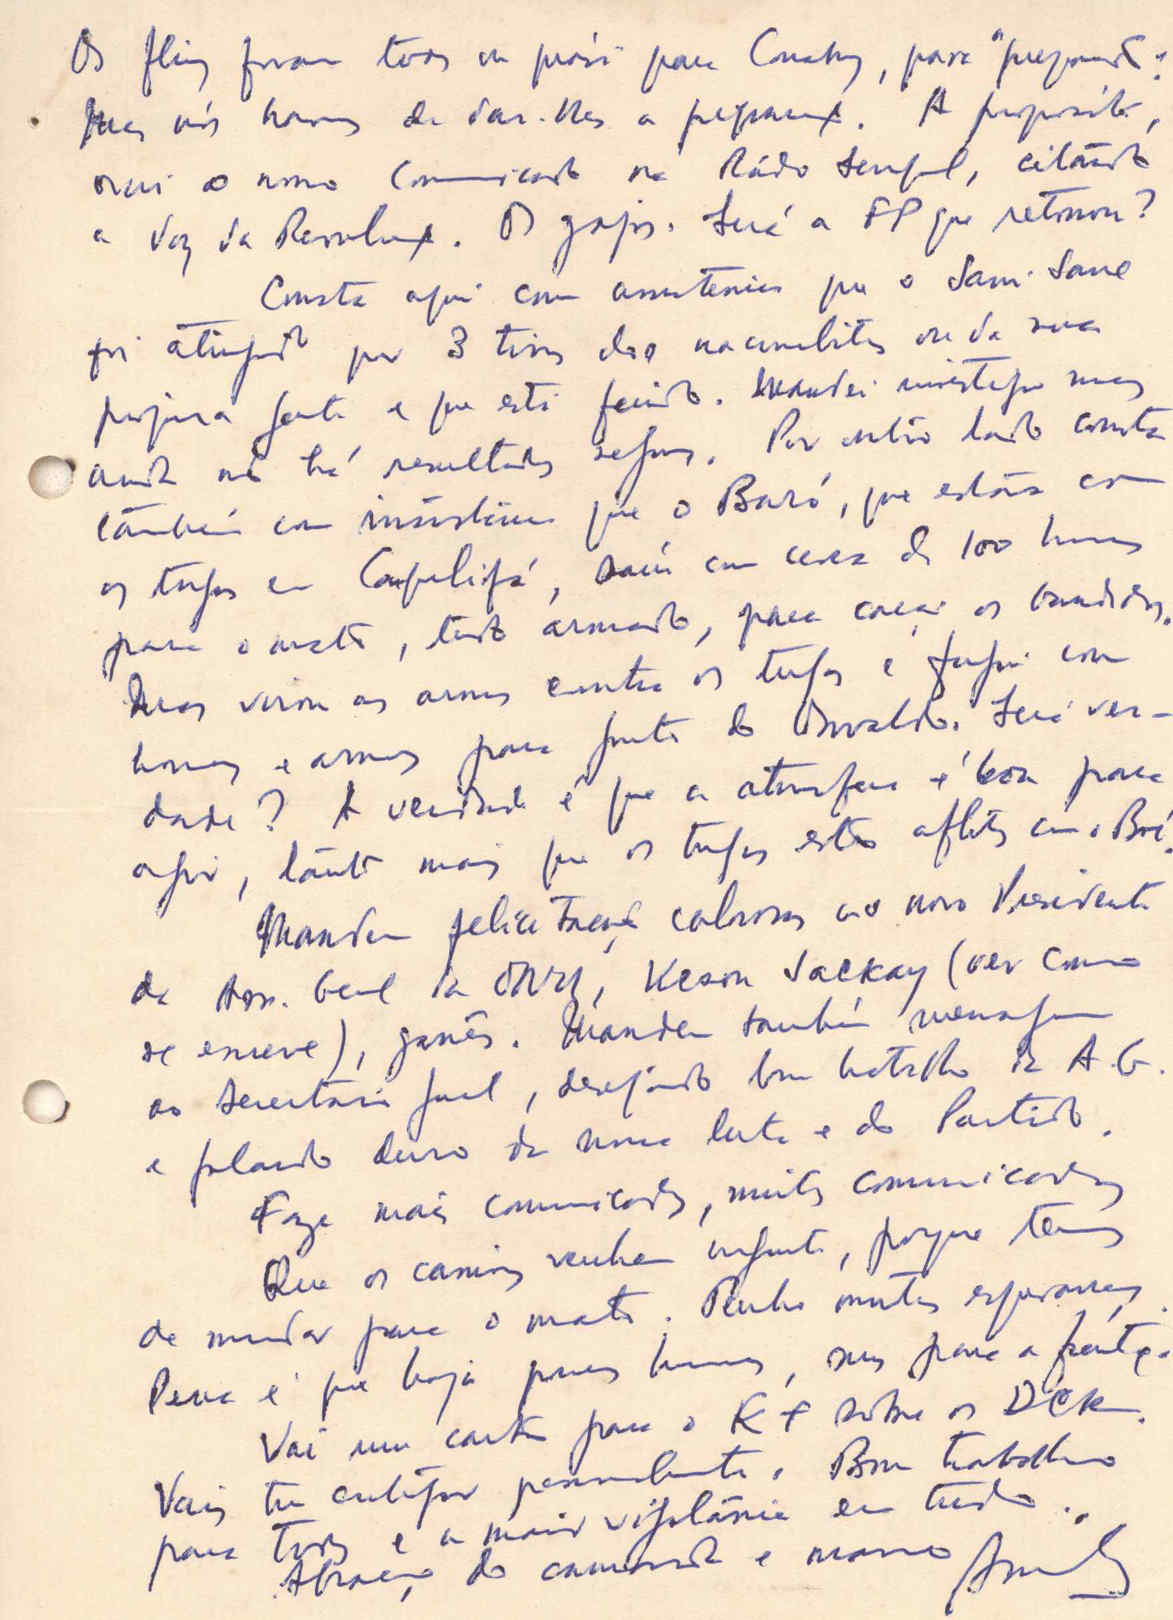 Os flings foram todos ou quási para Conakry, para "preparação".
Mas nós havemos de dar-lhes a preparação. A propósito,
ouvi o nosso Comunicado na Rádio Senegal, citando
a Voz da Revolução. Os gajos. Será a FP que retomou?
Consta aqui com insistência que o Sani Sané
foi atingido por 3 tiros dos nacionalistas ou da sua
própria gente e que está ferido. Mandei investigar mas
ainda não há resultados seguros. Por outro lado consta
também com insistência que o Baró, que estava com
os tugas em Campeliفá, saiu com cerca de 100 homens
para o mato, tudo armado, para caçar os bandidos.
Mas virou as armas contra os tugas e fugiu com
homens e armas para junto do Osvaldo. Será ver-
dade? A verdade é que a atmosfera é boa para
agir, tanto mais que os tugas estão aflitos com o
Mandem felicitações calorosas ao novo Presidente
da Ass. Geral da ONU, Keson Sackay (ver como
se escreve), ganês. Mandem também mensagem
ao Secretário geral, desejando bom trabalho da A.G.
e falando duro da nossa luta e do Partido.
Faze mais comunicados, muitos comunicados
Que os camiões venham urgente, porque temos
de mandar para o mato. Tenho muitas esperanças.
Pena é que haja poucos homens, mas para a frente.
Vai uma carta para o sobre os
Vais tu entregar pessoalmente. Bom trabalho
para todos e a maior vigilância em tudo.
Abraço do camarada e mano